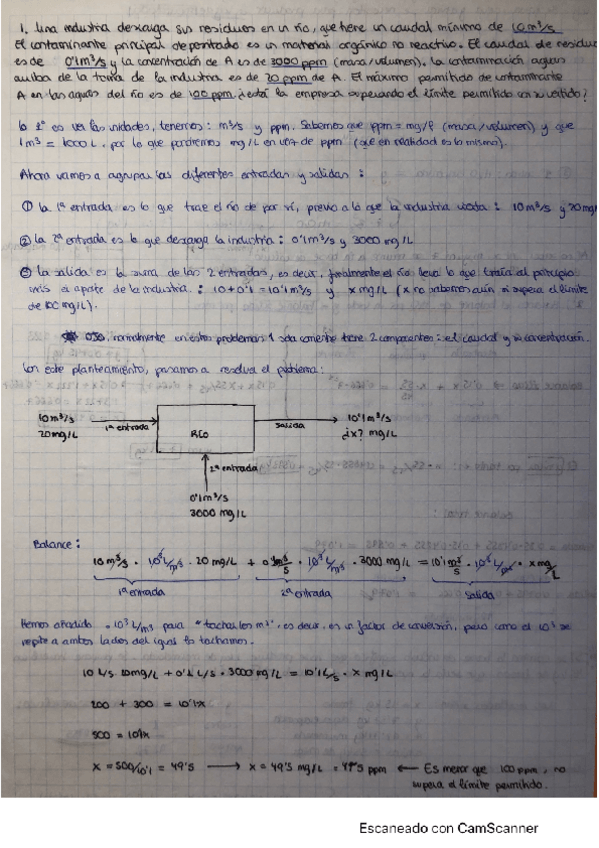 1. Una industria descarga sus residuos en un río, que tiene un caudal mínimo de 10 m³/s
El contaminante principal depositado es un material orgánico no reactivo. El caudal de residuos
es de 0'1 m³/s y la concentración de A es de 3000 ppm (masa/volumen). La contaminación aguas
arriba de la toma de la industria es de 20 ppm de A. El máximo permitido de contaminante
A en las aguas del río es de 100 ppm ¿está la empresa superando el límite permitido con su vertido?
Lo 1º es ver las unidades, tenemos: m³/s y ppm. Sabemos que ppm = mg/l (masa/volumen) y que
1m³ = 1000 L. por lo que pondremos mg/L en vez de ppm (que en realidad es lo mismo).
Ahora vamos a agrupar las diferentes entradas y salidas:
① La 1ª entrada es lo que trae el río de por sí, previo a lo que la industria vierta: 10 m³/s y 20 mg/
② La 2ª entrada es lo que descarga la industria: 0'1 m³/s y 3000 mg/L
③ La salida es la suma de las 2 entradas, es decir, finalmente el río lleva lo que traía al principio
más el aporte de la industria.: 10+0'1 = 10'1 m³/s y x mg/L (x no sabemos aún si supera el límite
de 100 mg/L).
* OJO, normalmente en estos problemas 1 sola corriente tiene 2 componentes: el caudal y su concentración.
Con este planteamiento, pasamos a resolver el problema:
10 m³/s
20 mg/L
1ª entrada
RÍO
salida
10'1 m³/s
¿x? mg/L
2ª entrada
0'1 m³/s
3000 mg/L
Balance:
10 m³/s · 10³ L/m³ · 20 mg/L + 0'1 m³/s · 10³ L/m³ · 3000 mg/L = 10'1 m³/s · 10³ L/m³ · x mg/L
1ª entrada 2ª entrada salida
Hemos añadido · 10³ L/m³ para "tachar los m³", es decir, es un factor de conversión, pero como el 10³ se
repite a ambos lados del igual lo tachamos.
10 L/s · 20 mg/L + 0'1 L/s · 3000 mg/L = 10'1 L/s · x mg/L
200 + 300 = 10'1x
500 = 10'1x
x = 500/10'1 = 49'5 → x = 49'5 mg/L = 49'5 ppm ← Es menor que 100 ppm, no
supera el límite permitido.
Escaneado con CamScanner